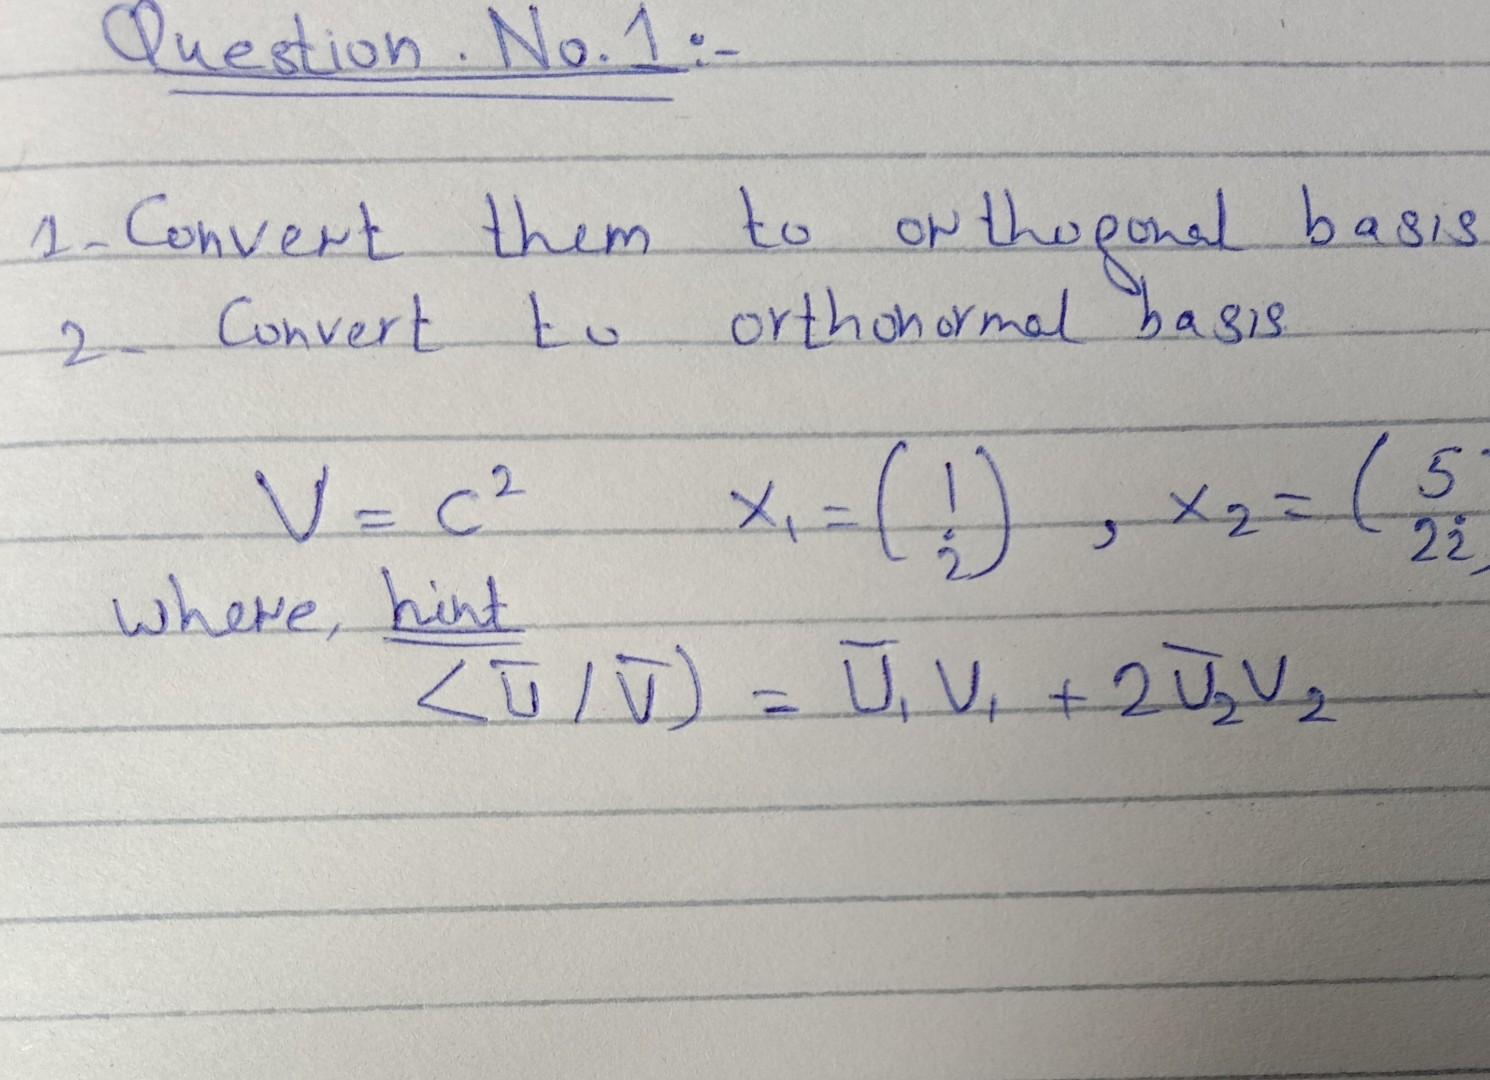 Question. No. 1:-
1- Convert them to orthogonal basis
2- Convert to orthonormal basis
V = C² x₁ = (1 i), x₂ = (5 2i)
where, hint
<ū/v̄) = ū₁ v₁ + 2ū₂v₂